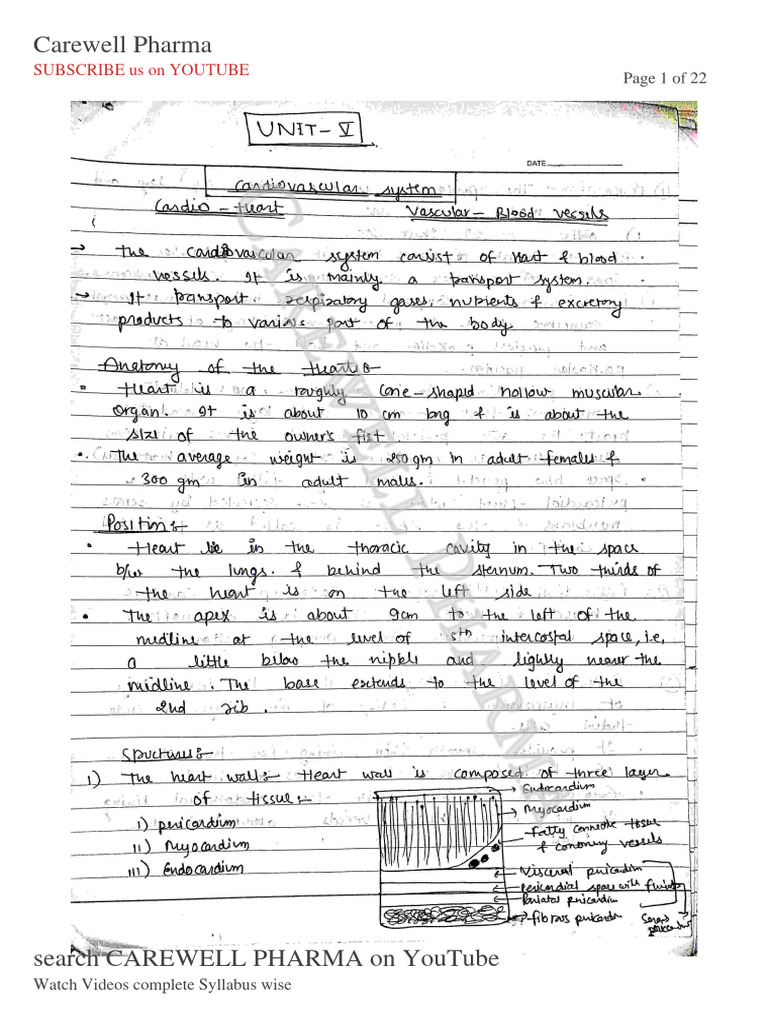 Carewell Pharma
SUBSCRIBE us on YOUTUBE
Page 1 of 22
UNIT-V
DATE
Cardiovascular system
Cardio - Heart Vascular - Blood vessels
→ The cardiovascular system consist of Hart & blood
vessels. It is mainly a transport system.
→ It transport respiratory gases, nutrients & excretory
products to various part of the body
Anatomy of the Heart:-
• Heart is a roughly cone-shaped hollow muscular
organ. It is about 10 cm long & is about the
size of the owner's fist.
• The average weight is 250 gm in adult females &
300 gm in adult males.
Position:-
• Heart lie in the thoracic cavity in the space
b/w the lungs & behind the sternum. Two thirds of
the heart is on the left side
• The apex is about 9cm to the left of the
midline at the level of 5th intercostal space, i.e,
a little below the nipple and lighly nearer the
midline. The base extends to the level of the
2nd rib.
Structures:-
1) The heart wall:- Heart wall is composed of three layer
of tissue:-
i) pericardium
ii) Myocardium
iii) Endocardium
Endocardium
Myocardium
Fatty connective tissue
& coronary vessels
Visceral pericardium
Pericardial space with fluid
Parietal pericardium
fibrous pericardm
CAREWELL PHARMA
search CAREWELL PHARMA on YouTube
Watch Videos complete Syllabus wise